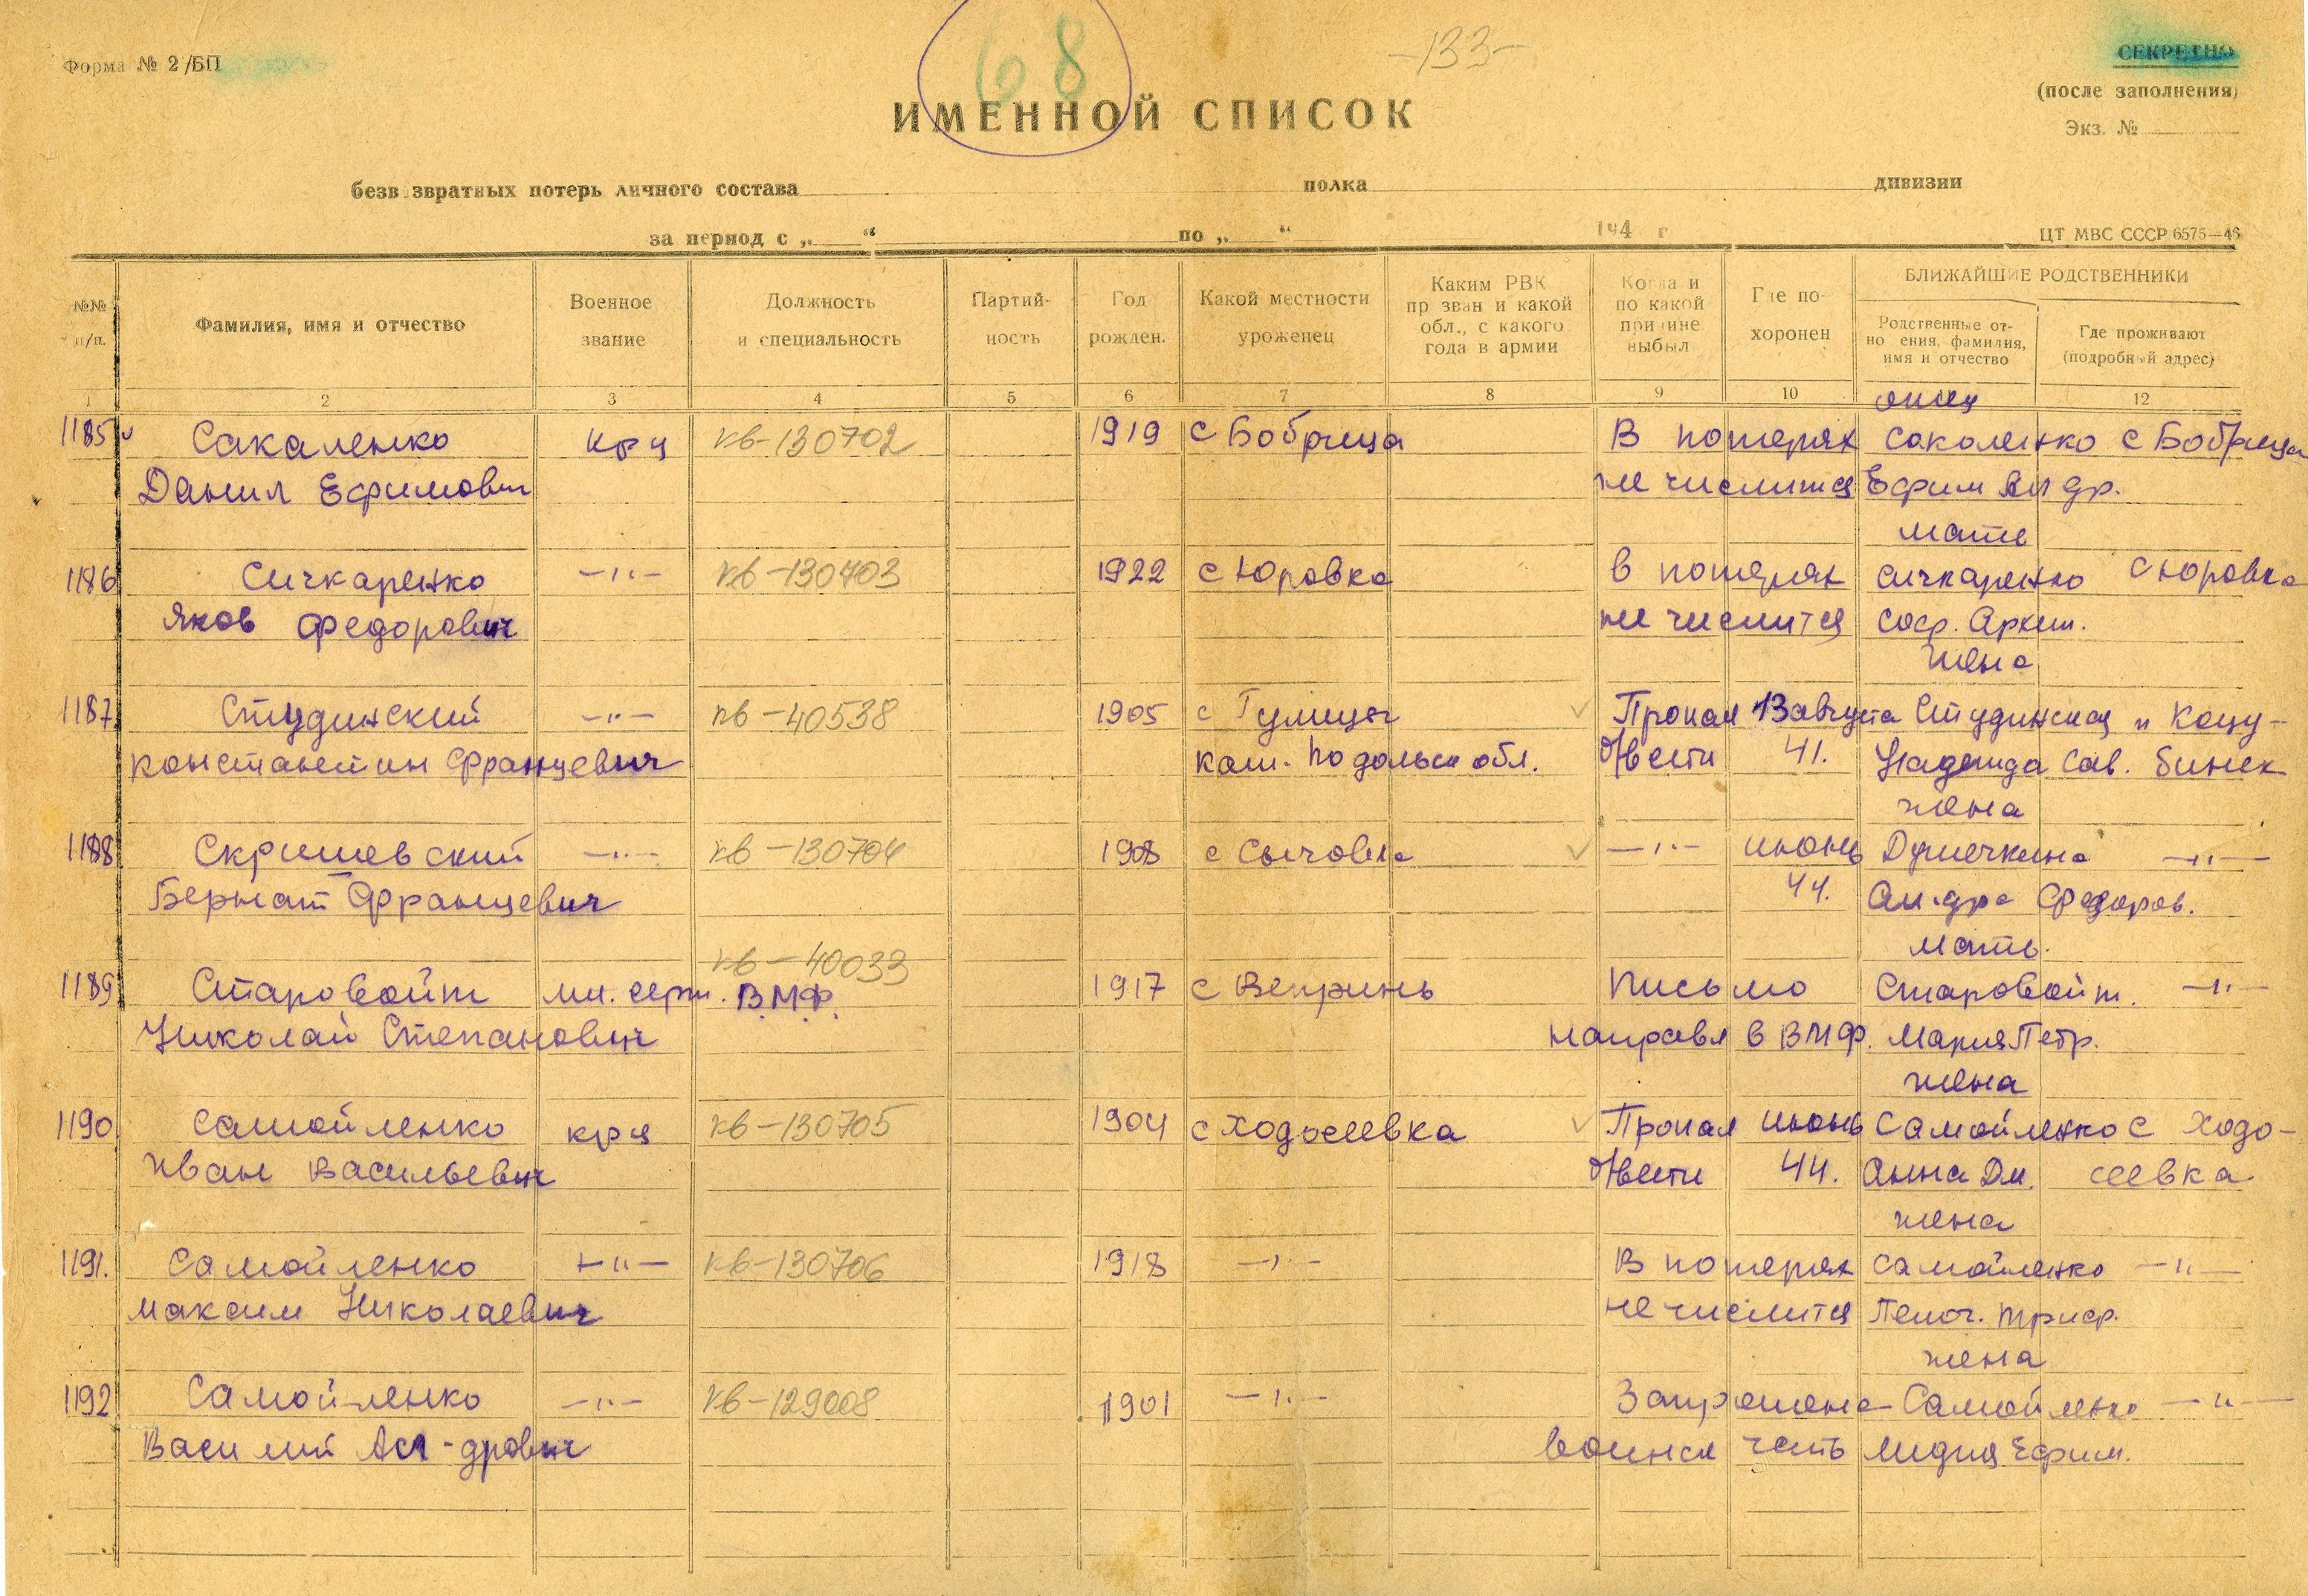 68
-133-
Форма № 2/БП
СЕКРЕТНО
(после заполнения)
Экз. №
ИМЕННОЙ СПИСОК
безв звратных потерь личного состава полка дивизии
за период с „ “ по „ “ 194 г
ЦТ МВС СССР 6575—46
№№ п/п.
Фамилия, имя и отчество
Военное звание
Должность и специальность
Партий- ность
Год рожден.
Какой местности уроженец
Каким РВК пр зван и какой обл., с какого года в армии
Когда и по какой причине выбыл
Где по- хоронен
БЛИЖАЙШИЕ РОДСТВЕННИКИ
Родственные от- но ения, фамилия, имя и отчество
Где проживают (подробный адрес)
1 2 3 4 5 6 7 8 9 10 12
отец
1185 Сакаленко крц кв-130702 1919 с Бобрица В потерях Соколенко с Бобрица
Данил Ефимович не числится Ефим Ал др.
мать
1186 Сичкаренко —"— кв-130703 1922 с Юровка в потерях Сичкаренко с Юровка
Яков Федорович не числится Соф. Архип.
жена
1187 Студинский —"— пв-40538 1905 с Гулицы Пропал 13 августа Студинская п Коцу-
Константин Францевич кам. Подольск обл. б/вести 41. Надежда Сав. бинск
жена
1188 Скришевский —"— кв-130704 1908 с Сычовка —"— июнь Душечкина —"—
Бернат Францевич 44. Ал.дра Федоров.
мать.
кв-40033
1189 Старовойт мл. серж. В.М.Ф. 1917 с Вепринь Письмо Старовойт. —"—
Николай Степанович направл в ВМФ. Мария Петр.
жена
1190 Самойленко крц кв-130705 1904 с Ходосеевка Пропал июнь Самойленко с Ходо-
Иван Васильевич б/вести 44. Анна Дм. сеевка
жена
1191. Самойленко —"— кв-130706 1918 —"— В потерях Самойленко —"—
Максим Николаевич не числится Пелаг. Триф.
жена
1192 Самойленко —"— кв-129008 1901 —"— Запрошена Самойленко —"—
Василий Ал-дрович воинск часть Лидия Ефим.